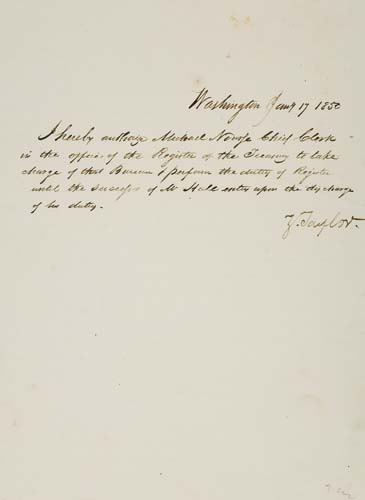 Washington Jany 17 1850
I hereby authorize Michael Nourse Chief Clerk
in the office of the Register of the Treasury to take
charge of that Bureau & perform the duties of Register
until the successor of Mr Hall enters upon the discharge
of his duties.
Z. Taylor.